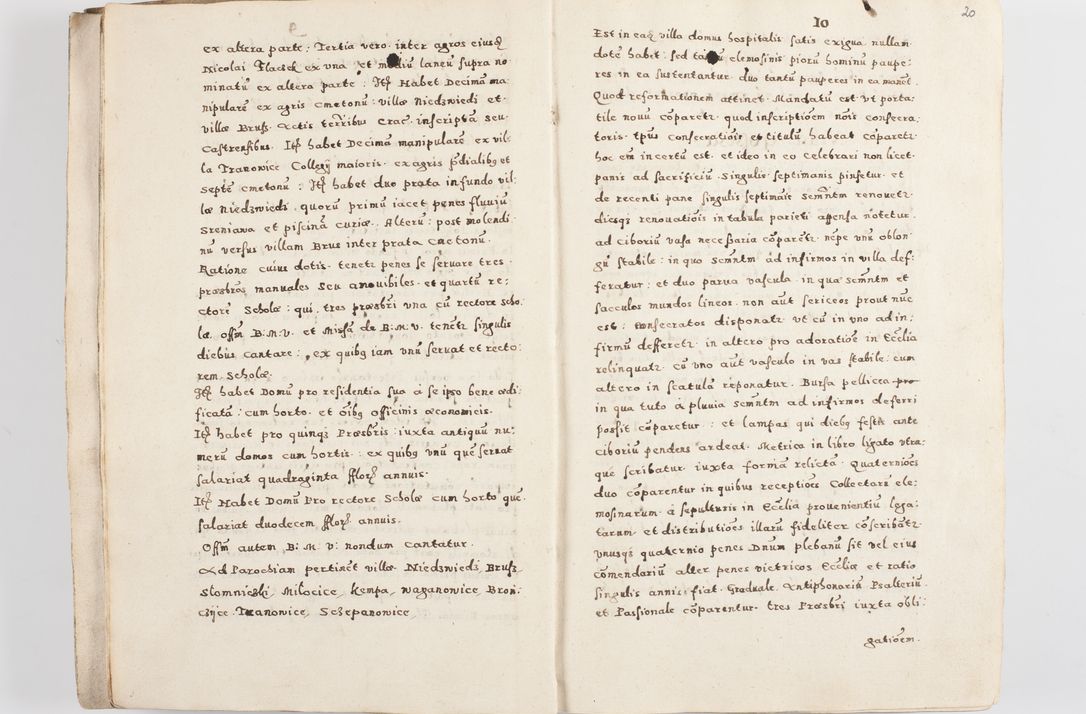 ex altera parte: Tertia vero inter agros eiusdē
Nicolai Flaczek ex una et mediū laneū supra no
minatū ex altera parte: Itē Habet Decimā ma
nipularē ex agris cmetonū villæ Niedzwiedz et
villæ Brus. Actis terribus Crac. inscripta seu
Castrensibus. Itē habet Decimā manipularē ex vil
la Tranowice Collegij maioris ex agris p̄dialibꝫ et
septē cmetonū: Itē habet duo prata in fundo vil
læ Niedzwiedz quorū primū iacet penes fluviū
Sreniawa et piscinā curiæ. Alterū: post molendi
nū versus villam Brus inter prata cmetonū.
Ratione cuius dotis tenetr penes se servare tres
præsbr̄os manuales seu amovibiles et quartū re:
ctorē Scholæ: qui tres præsbr̄i una cū rectore scho
læ offm B: M: V. et Missā de B: M: V. tenētr singulis
diebus cantare: ex quibꝫ iam unū servat et recto:
rem Scholæ.
Itē habet Domū pro residentia sua à se ipso bene ædi
ficatā: cum horto et oībꝫ officinis œconomicis.
Itē habet pro quinqꝫ Præsbr̄is iuxta antiquū nu:
merū domos cum hortis: ex quibꝫ unū quē servat
salariat quadraginta flor annuis.
Itē Habet Domū Pro rectore Scholæ cum horto quē
salariat duodecem flor annuis.
Offm autem B: M: V: nondum cantatur.
Ad Parochiam pertinēt villæ Niedzwiedz, Brus,
Slomnieski, Milocice, Kempa, Waganowice, Broń:
czijce Tranowice, Sczepanowice
10
20
Est in eaꝫ villa domus hospitalis satis exigua nullam
dotē habet sed tantū elemosinis piorū hominū paupe:
res in ea sustentantur duo tantū pauperes in ea manēt.
Quod reformationem attinet. Mandatū est vt porta:
tile novū cōparetr quod inscriptiōem nōis consecra
toris tp̄us consecratiōis et titulū habeat cōparetr
hoc em̄ incertū est et ideo in eo celebrari non licet.
panis ad sacrificiū singulis septimanis pinsetur et
de recenti pane singulis septimais semn̄tm renovetr
diesqꝫ renovatiōis in tabula parieti affensa notetur.
ad ciboriū vasa necessaria cōparētr nēpe unū oblon
gū stabile: in quo semn̄tm ad infirmos in villa def:
feratur: et duo parva vascula in qua semn̄tm et
sacculos mundos lineos non aūt sericeos prout nūc
est: consecratos disponatr vt cū in uno ad in:
firmū defferetr in altero pro adoratiōe in Eccliā
relinquatr cū uno aūt vasculo in vas stabile: cum
altero in scatulā reponatur. Bursa pellicea pro
in qua tuto à pluvia semn̄tm ad infirmos deferri
possit cōparetur: et lampas qui diebꝫ festis ante
ciboriū pendens ardeat. Metrica in libro ligato utra:
que scribatur iuxta formā relictā. Quaterniōes
duo cōparentur in quibus receptiōes Collectarū ele:
mosinarum à sepulturis in Ecclia provenientiū lega:
tarum et distributiōes illarū fideliter cōscribātr
unusqꝫ quaternio penes Dnum plebanū sit vel eius
cōmendariū alter penes victricos Eccliæ et ratio
singulis annis fiat. Graduale Antiphonariū Psalteriū
et Passionale cōparentur. tres Præsbr̄i iuxta obli:
gatiōem